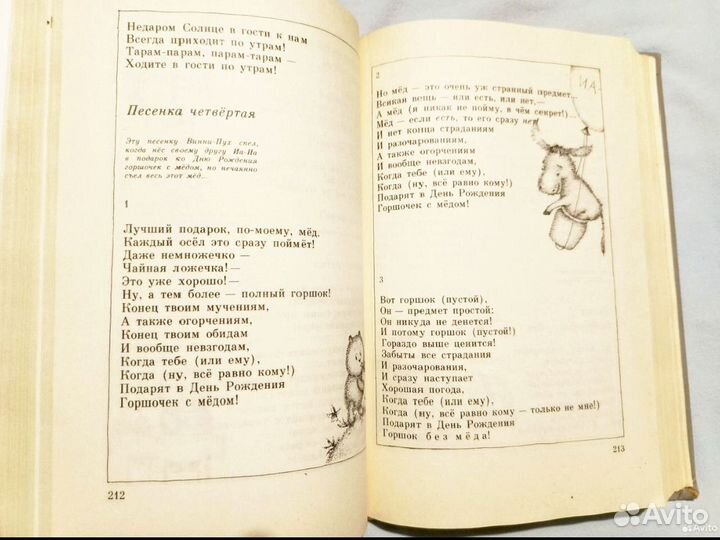 Недаром Солнце в гости к нам
Всегда приходит по утрам!
Тарам-парам, парам-тарам —
Ходите в гости по утрам!
Песенка четвёртая
Эту песенку Винни-Пух спел,
когда нёс своему другу Иа-Иа
в подарок ко Дню Рождения
горшочек с мёдом, но нечаянно
съел весь этот мёд...
1
Лучший подарок, по-моему, мёд.
Каждый осёл это сразу поймёт!
Даже немножечко —
Чайная ложечка! —
Это уже хорошо!
Ну, а тем более — полный горшок!
Конец твоим мучениям,
А также огорчениям,
Конец твоим обидам
И вообще невзгодам,
Когда тебе (или ему),
Когда (ну, всё равно кому!)
Подарят в День Рождения
Горшочек с мёдом!
212
2
Но мёд — это очень уж странный предмет...
Всякая вещь — или есть, или нет,—
А мёд (я никак не пойму, в чём секрет!)...
Мёд — если есть, то его сразу нет!
И нет конца страданиям
И разочарованиям,
А также огорчениям
И вообще невзгодам,
Когда тебе (или ему),
Когда (ну, всё равно кому!)
Подарят в День Рождения
Горшочек с мёдом!
ИА-
3
Вот горшок (пустой),
Он — предмет простой;
Он никуда не денется!
И потому горшок (пустой!)
Гораздо выше ценится!
Забыты все страдания
И разочарования,
И сразу наступает
Хорошая погода,
Когда тебе (или ему),
Когда (ну, всё равно кому — только не мне!)
Подарят в День Рождения
Горшок без мёда!
213
Avito
Avito